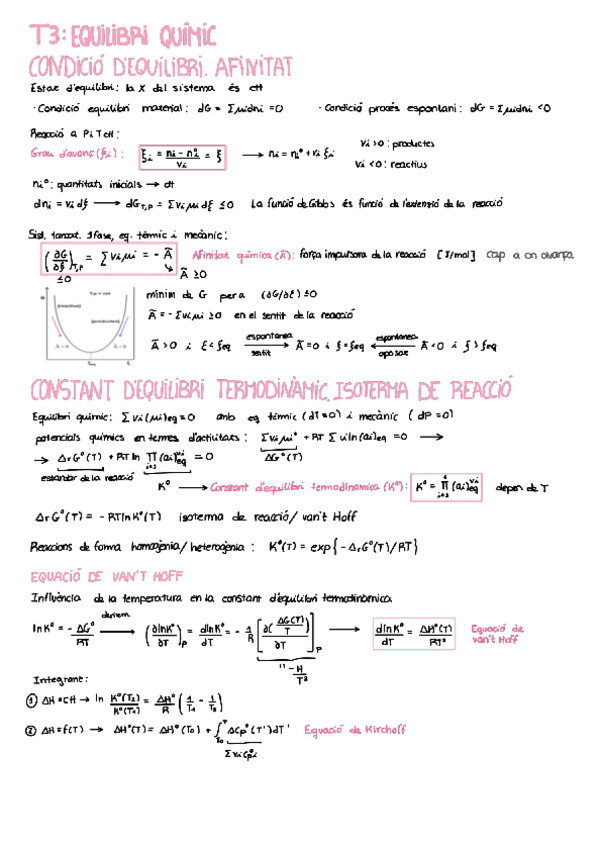 T3: EQUILIBRI QUÍMIC
CONDICIÓ D'EQUILIBRI. AFINITAT
Estat d'equilibri: la X del sistema és ctt
· Condició equilibri material: dG = Σμidni = 0 · Condició procés espontani: dG = Σμidni < 0
Reacció a P i T ctt:
Grau d'avanç (ξi): ξi = ni - ni° / νi = ξ → ni = ni° + νi ξi
νi > 0: productes
νi < 0: reactius
ni°: quantitats inicials → ctt
dni = νi dξ → dG T,P = Σνiμi dξ ≤ 0 La funció de Gibbs és funció de l'extensió de la reacció
Sist. tancat. 1 fase, eq. tèrmic i mecànic:
(∂G/∂ξ)T,P = Σνiμi = - Ã Afinitat química (Ã): força impulsora de la reacció [J/mol] cap a on avança
≤0 Ã ≥ 0
mínim de G per a (∂G/∂ξ) ≤ 0
Ã = - Σνiμi ≥ 0 en el sentit de la reacció
Ã > 0 i ξ < ξeq espontanea sentit → Ã = 0 i ξ = ξeq ← espontanea oposat Ã < 0 i ξ > ξeq
G
T,p = ctt
[reactius]
[productes]
Ã > 0 Ã < 0
ξeq ξ
CONSTANT D'EQUILIBRI TERMODINÀMIC. ISOTERMA DE REACCIÓ
Equilibri químic: Σνi(μi)eq = 0 amb eq. tèrmic (dT = 0) i mecànic (dP = 0)
potencials químics en termes d'activitats: Σνiμi° + RT Σνiln(ai)eq = 0 →
ΔG°(T)
→ ΔrG°(T) + RT ln Π(ai)eq^νi = 0
i=1
estàndar de la reacció K° → Constant d'equilibri termodinàmica (K°): K° = Π(ai)eq^νi depen de T
i=1
ΔrG°(T) = - RTlnK°(T) isoterma de reacció / van't Hoff
Reaccions de forma homogènia / heterogènia: K°(T) = exp{-ΔrG°(T)/RT}
EQUACIÓ DE VAN'T HOFF
Influència de la temperatura en la constant d'equilibri termodinàmica
lnK° = - ΔG°/RT derivem → (∂lnK°/∂T)P = dlnK°/dT = - 1/R [∂(ΔG(T)/T)/∂T]P → dlnK°/dT = ΔH°(T)/RT² Equació de van't Hoff
" - H/T²
Integrant:
① ΔH = ctt → ln K°(T2)/K°(T1) = ΔH°/R (1/T1 - 1/T2)
② ΔH = f(T) → ΔH°(T) = ΔH°(T0) + ∫T0^T ΔCp°(T')dT' Equació de Kirchoff
Σνi Cp°i